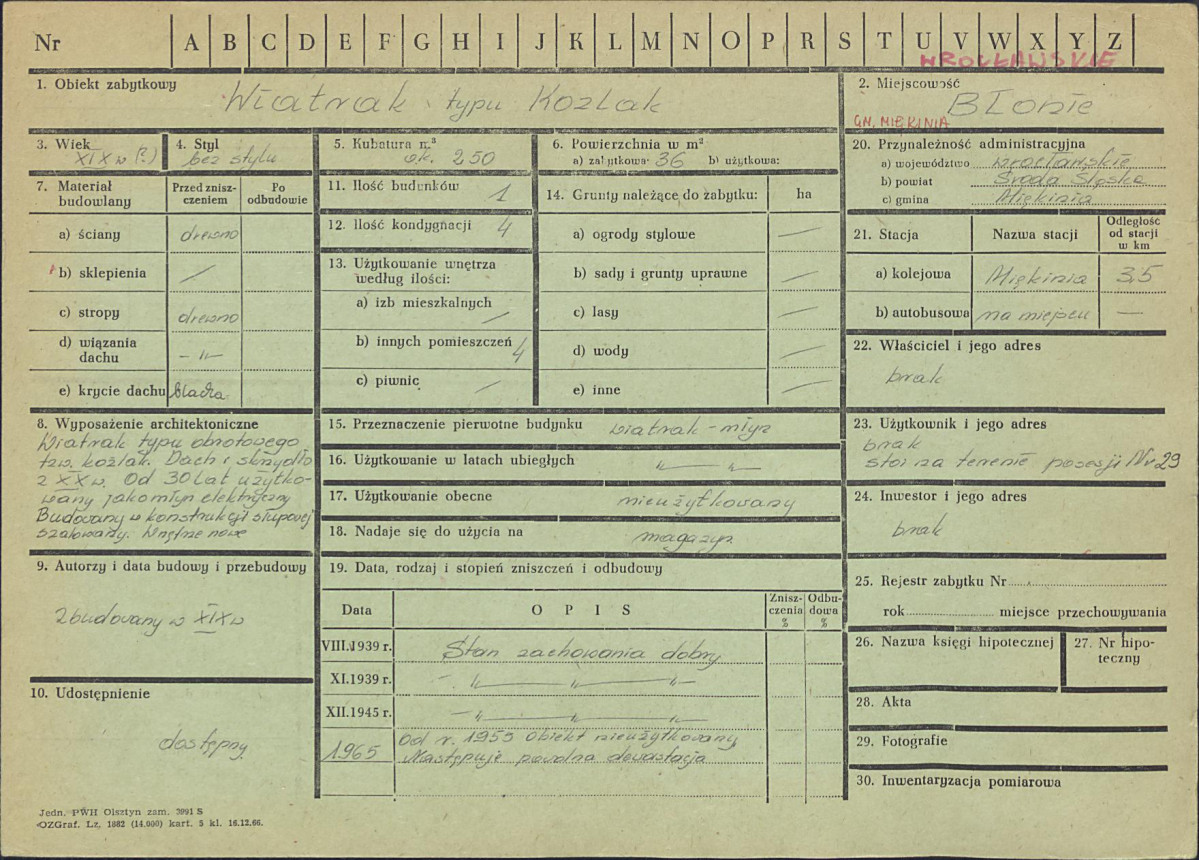 Nr A B C D E F G H I J K L M N O P R S T U V W X Y Z
WROCŁAWSKIE
1. Obiekt zabytkowy
Wiatrak typu Koźlak
2. Miejscowość
Błonie
GM. MIĘKINIA
3. Wiek
XIX w (?)
4. Styl
bez stylu
5. Kubatura m³
ok. 250
6. Powierzchnia w m²
a) zabytkowa: 36 b) użytkowa:
7. Materiał budowlany
Przed zniszczeniem
Po odbudowie
a) ściany drewno
b) sklepienia /
c) stropy drewno
d) wiązania dachu - " -
e) krycie dachu blacha
8. Wyposażenie architektoniczne
Wiatrak typu obrotowego
tzw. koźlak. Dach i skrzydło
z XX w. Od 30 lat użytko-
wany jako młyn elektryczny
Budowany w konstrukcji słupowej
szalowany. Wnętrze nowe
9. Autorzy i data budowy i przebudowy
Zbudowany w XIX w
10. Udostępnienie
dostępny
11. Ilość budynków 1
12. Ilość kondygnacji 4
13. Użytkowanie wnętrza według ilości:
a) izb mieszkalnych /
b) innych pomieszczeń 4
c) piwnic /
14. Grunty należące do zabytku: ha
a) ogrody stylowe —
b) sady i grunty uprawne —
c) lasy —
d) wody —
e) inne —
15. Przeznaczenie pierwotne budynku wiatrak - młyn
16. Użytkowanie w latach ubiegłych " — "
17. Użytkowanie obecne nieużytkowany
18. Nadaje się do użycia na magazyn
19. Data, rodzaj i stopień zniszczeń i odbudowy
Data
OPIS
Zniszczenia %
Odbudowa %
VIII.1939 r. Stan zachowania dobry
XI.1939 r. - " — " — "
XII.1945 r. - " — " — "
1965 Od r. 1955 obiekt nieużytkowany
Następuje powolna dewastacja
20. Przynależność administracyjna
a) województwo wrocławskie
b) powiat Środa Śląska
c) gmina Miękinia
21. Stacja
Nazwa stacji
Odległość od stacji w km
a) kolejowa Miękinia 3,5
b) autobusowa na miejscu —
22. Właściciel i jego adres
brak
23. Użytkownik i jego adres
brak
stoi na terenie posesji Nr 29
24. Inwestor i jego adres
brak
25. Rejestr zabytku Nr
rok miejsce przechowywania
26. Nazwa księgi hipotecznej
27. Nr hipoteczny
28. Akta
29. Fotografie
30. Inwentaryzacja pomiarowa
Jedn. PWH Olsztyn zam. 3991 S
OZGraf. Lz. 1882 (14.000) kart. 5 kl. 16.12.66.